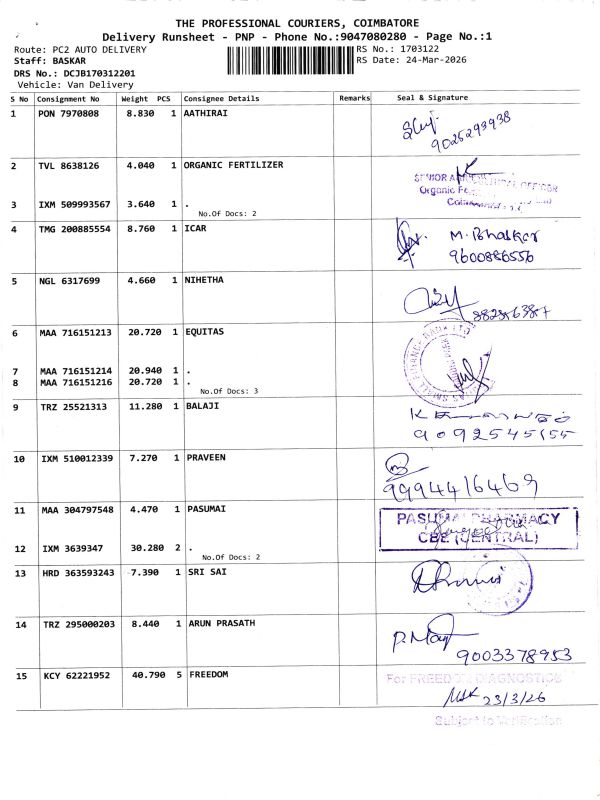 THE PROFESSIONAL COURIERS, COIMBATORE
Delivery Runsheet - PNP - Phone No.:9047080280 - Page No.:1
Route: PC2 AUTO DELIVERY RS No.: 1703122
Staff: BASKAR RS Date: 24-Mar-2026
DRS No.: DCJB170312201
Vehicle: Van Delivery
S No Consignment No Weight PCS Consignee Details Remarks Seal & Signature
1 PON 7970808 8.830 1 AATHIRAI
9025293938
2 TVL 8638126 4.040 1 ORGANIC FERTILIZER
SENIOR
Organic
3 IXM 509993567 3.640 1 .
No.Of Docs: 2
4 TMG 200885554 8.760 1 ICAR M. Bhaskar
9600886556
5 NGL 6317699 4.660 1 NIHETHA
6 MAA 716151213 20.720 1 EQUITAS
7 MAA 716151214 20.940 1 .
8 MAA 716151216 20.720 1 .
No.Of Docs: 3
9 TRZ 25521313 11.280 1 BALAJI
9092545155
10 IXM 510012339 7.270 1 PRAVEEN
9994416469
11 MAA 304797548 4.470 1 PASUMAI
PASUMAI PHARMACY
CBE (CENTRAL)
12 IXM 3639347 30.280 2 .
No.Of Docs: 2
13 HRD 363593243 7.390 1 SRI SAI
14 TRZ 295000203 8.440 1 ARUN PRASATH
9003378953
15 KCY 62221952 40.790 5 FREEDOM For FREEDOM DIAGNOSTICS
23/3/26
Subject to Verification